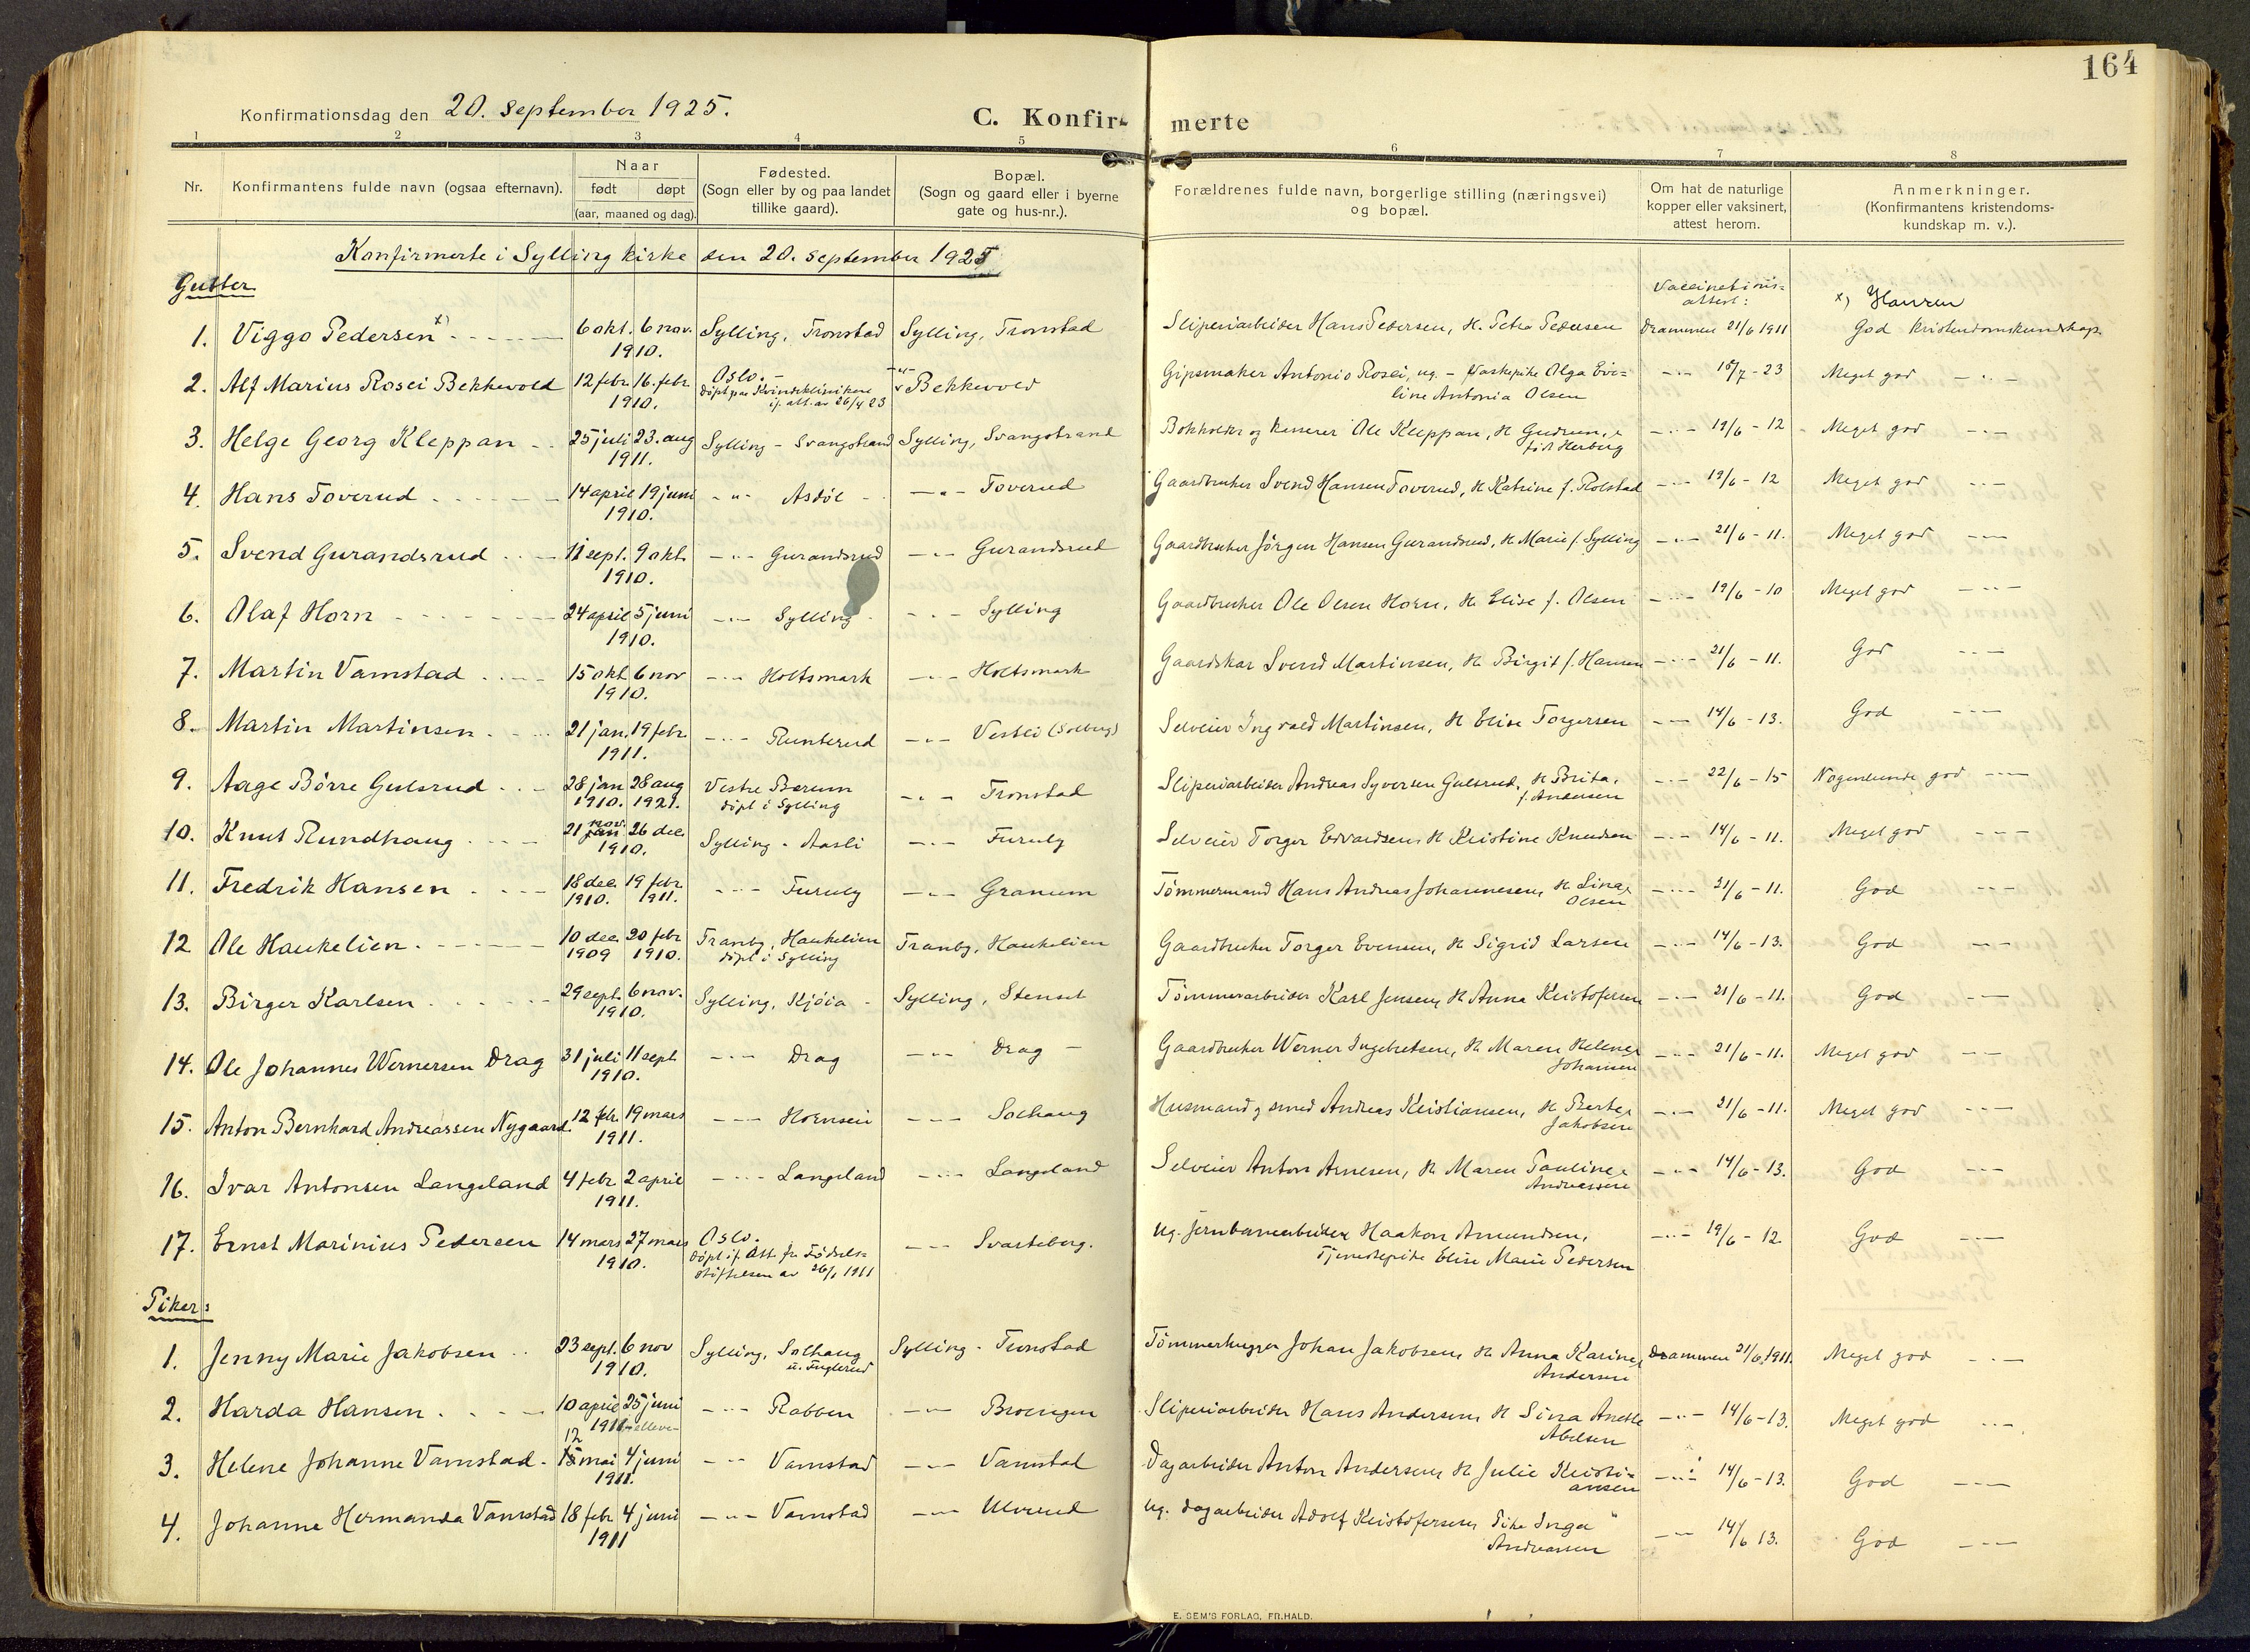 164
Konfirmationsdag den 20. september 1925.
C. Konfir- merte
1 2 3 4 5 6 7 8
Nr.
Konfirmantens fulde navn (ogsaa efternavn).
Naar
født døpt
(aar, maaned og dag).
Fødested.
(Sogn eller by og paa landet
tillike gaard).
Bopæl.
(Sogn og gaard eller i byerne
gate og hus-nr.).
Forældrenes fulde navn, borgerlige stilling (næringsvei)
og bopæl.
Om hat de naturlige
kopper eller vaksinert,
attest herom.
Anmerkninger.
(Konfirmantens kristendoms-
kundskap m. v.).
Konfirmerte i Sylling kirke den 20. september 1925
Gutter
Vaccinations-
attest:
x) Hansen
1. Viggo Pedersen x) 6 okt. 6 nov. 1910. Sylling, Tronstad Sylling, Tronstad Sliperiarbeider Hans Pedersen, H. Petra Pedersen Drammen 21/6 1911 God kristendomskundskap.
2. Alf Marius Rosei Bekkevold 12 febr. 16. febr. 1910. Oslo. - døpt paa Kvindeklinikken if. att. av 26/4 23 -"- Bekkevold Gipsmaker Antonio Rosei, ug. - Vaskepike Olga Eve=
line Antonia Olsen -"- 18/7 - 23 Meget god -"-
3. Helge Georg Kleppan 25 juli 23. aug 1911. Sylling - Svangstrand Sylling, Svangstrand Bokholder og kasserer Ole Kleppan, H Gudrun,
født Herberg -"- 19/6 - 12 Meget god -"-
4. Hans Toverud 14 april 19 juni 1910. -"- Asdøl -"- Toverud Gaardbruker Svend Hansen Toverud, H Katrine f. Rolstad -"- 19/6 - 12 Meget god -"-
5. Svend Gurandsrud 11 sept. 9 okt. 1910. -"- Gurandsrud -"- Gurandsrud Gaardbruker Jørgen Hansen Gurandsrud, H. Marie f. Sylling -"- 21/6 - 11. Meget god -"-
6. Olaf Horn 24 april 5 juni 1910. -"- Sylling -"- Sylling Gaardbruker Ole Olsen Horn, H. Elise f. Olsen -"- 19/6 - 10 Meget god -"-
7. Martin Vamstad 15 okt 6 nov 1910. -"- Holtsmark -"- Holtsmark Gaardskar Svend Martinsen, H. Birgit f. Hansen -"- 21/6 - 11. God -"-
8. Martin Martinsen 21 jan. 19 febr. 1911. -"- Runterud -"- Vestli (Solberg) Selveier Ingvald Martinsen, H Elise Torgersen -"- 14/6 - 13. God -"-
9. Aage Børre Gulsrud 28 jan 1910. 28 aug 1921. Vestre Bærum døpt i Sylling -"- Tronstad Sliperiarbeider Andreas Syversen Gulsrud, H Brita,
f. Andersen -"- 22/6 - 15 Nogenlunde god -"-
10. Knut Rundhaug 21 nov. 26 dec 1910. Sylling - Aasli -"- Furuly Selveier Torger Edvardsen, H Kristine Knudsen -"- 14/6 - 11. Meget god -"-
11. Fredrik Hansen 18 dec. 1910. 19 febr 1911. -"- Furuly -"- Granum Tømmermand Hans Andreas Johannesen, H Lina,
Olsen -"- 21/6 - 11. God -"-
12 Ole Haukelien 10 dec. 1909 20 febr 1910. Tranby, Haukelien døpt i Sylling Tranby, Haukelien Gaardbruker Torger Evensen, H Sigrid Larsen -"- 14/6 - 13. God -"-
13. Birger Karlsen 29 sept. 6 nov. 1910. Sylling, Kjøia Sylling, Stenset Tømmerarbeider Karl Jensen, H Anna Kristofersen -"- 21/6 - 11. God -"-
14. Ole Johannes Wernersen Drag 31 juli 11 sept 1910. -"- Drag -"- Drag - Gaardbruker Werner Ingebretsen, H. Maren Helene,
Johansen -"- 21/6 - 11. Meget god -"-
15. Anton Bernhard Andreassen Nygaard. 12 febr. 19 mars 1911. -"- Hornsei -"- Solhaug Husmand og smed Andreas Kristiansen, H Berte,
Jakobsen -"- 21/6 - 11. Meget god -"-
16. Ivar Antonsen Langeland 4 febr 2 april 1911. -"- Langeland -"- Langeland Selveier Anton Arnesen, H Maren Pauline,
Andreassen -"- 14/6 - 13. God -"-
17. Ernst Marinius Pedersen 14 mars 27 mars 1910. Oslo. Døpt if. Att. fr. Fødsels= stiftelsen av 26/1 1911 -"- Svarteberg. Ug. jernbanearbeider Haakon Amundsen,
Tjenestepike Elise Marie Pedersen -"- 19/6 - 12 God -"-
Piker:
1. Jenny Marie Jakobsen 23 sept. 6 nov 1910. Sylling, Solhaug u. Fuglerud Sylling - Tronstad Tømmerhugger Johan Jakobsen, H. Anna Karine,
Andersen Drammen 21/6 1911. Meget god -"-
2. Harda Hansen 10 april 25 juni 1911 -elleve- -"- Rabben -"- Broengen Sliperiarbeider Hans Andersen, H Lina Anette
Abelsen -"- 14/6 - 13. Meget god -"-
3. Helene Johanne Vamstad 12 mai 4 juni 1911. -"- Vamstad -"- Vamstad Dagarbeider Anton Andersen, H Julie Kristi=
ansen -"- 14/6 - 13. God -"-
4. Johanne Hermanda Vamstad 18 febr 4 juni 1911 -"- Vamstad -"- Ulverud Ug. dagarbeider Adolf Kristofersen, Pike Inga
Andreassen -"- 14/6 13. God -"-
E. SEM'S FORLAG, FR.HALD.